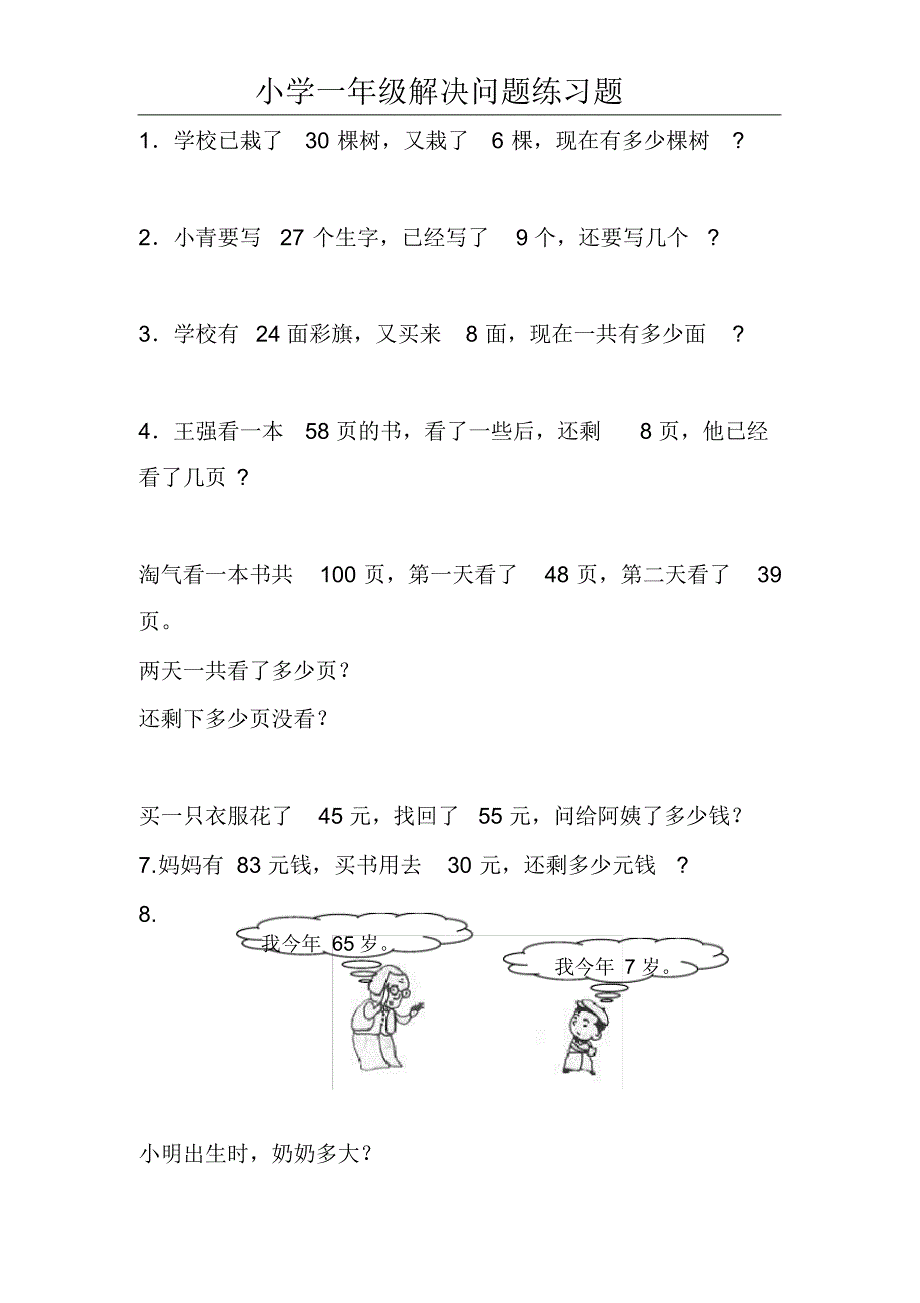 小学一年级解决问题练习题
1．学校已栽了 30 棵树，又栽了 6 棵，现在有多少棵树 ?
2．小青要写 27 个生字，已经写了 9 个，还要写几个 ?
3．学校有 24 面彩旗，又买来 8 面，现在一共有多少面 ?
4．王强看一本 58 页的书，看了一些后，还剩 8 页，他已经
看了几页 ?
淘气看一本书共 100 页，第一天看了 48 页，第二天看了 39
页。
两天一共看了多少页？
还剩下多少页没看？
买一只衣服花了 45 元，找回了 55 元，问给阿姨了多少钱？
7.妈妈有 83 元钱，买书用去 30 元，还剩多少元钱 ?
8.
我今年 65 岁。
我今年 7 岁。
小明出生时，奶奶多大？